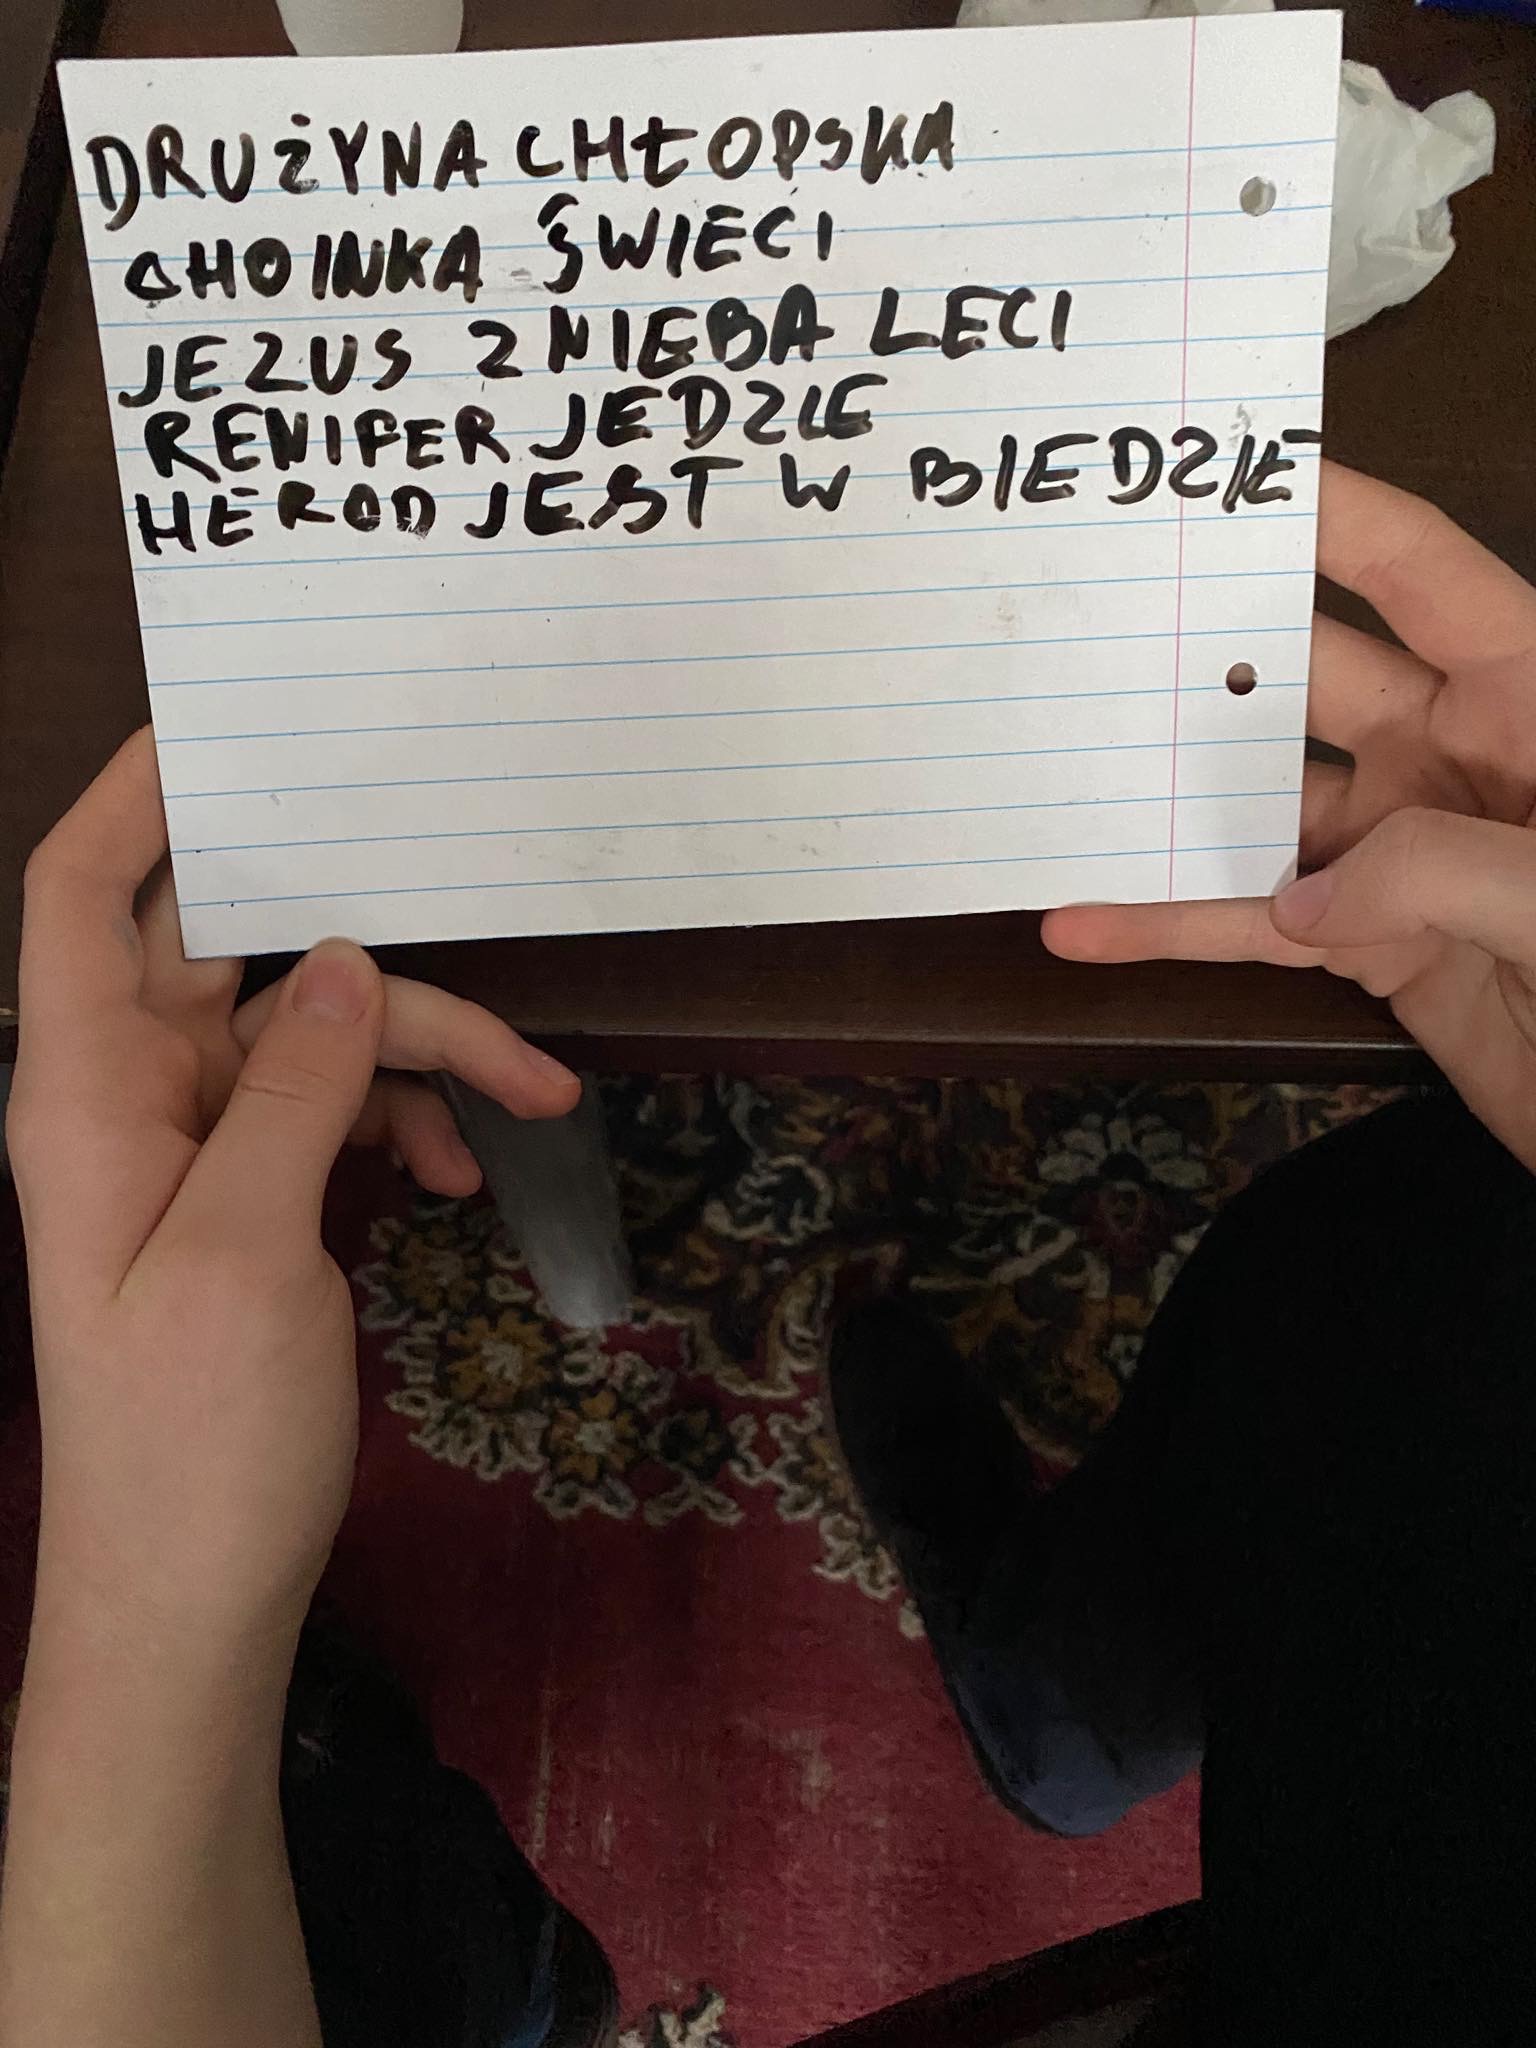 DRUŻYNA CHŁOPSKA
CHOINKA ŚWIECI
JEZUS Z NIEBA LECI
RENIFER JEDZIE
HEROD JEST W BIEDZIE